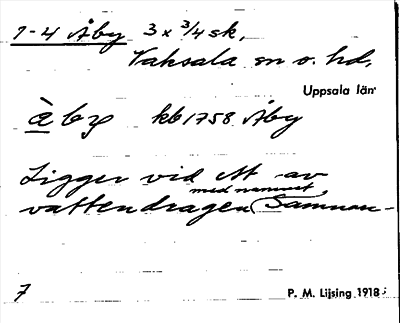 1-4 Åby 3 x 3/4 sk,
Vaksala sn o. hd,
Uppsala län
àby kb 1758 Åby
Ligger vid ett av
med namnet
vattendragen Samnan-
7 P. M. Lijsing 1918